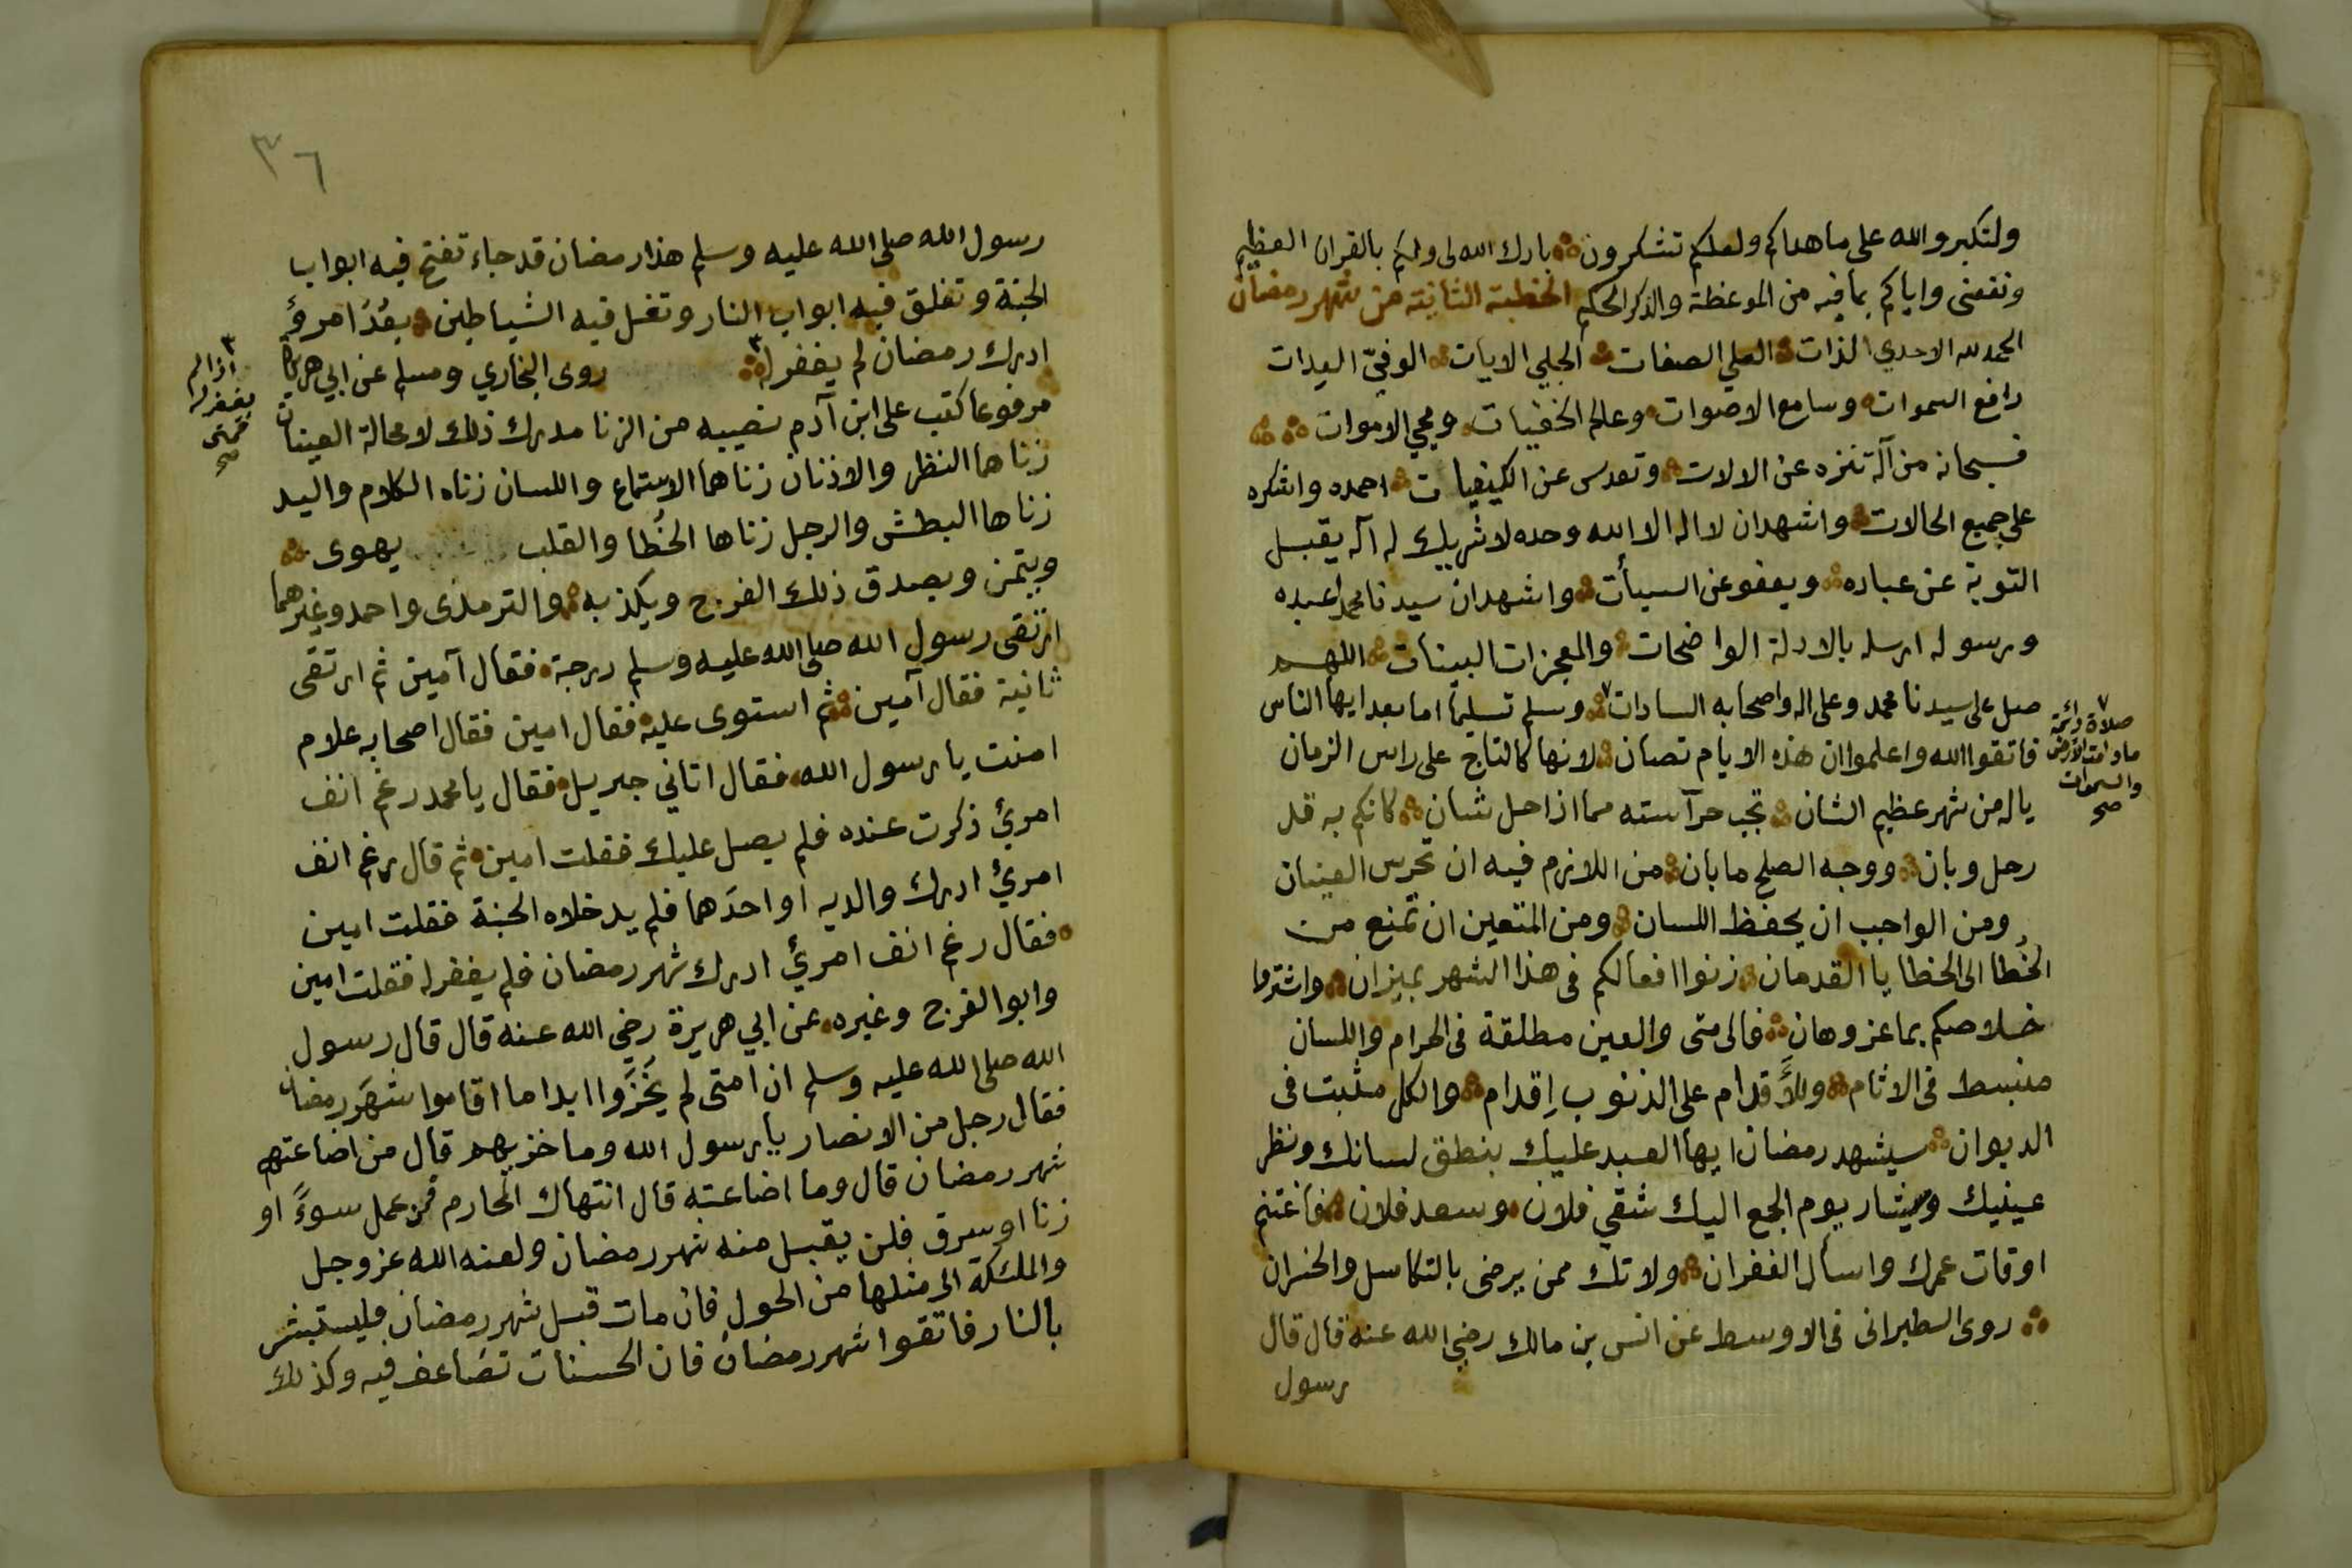 ولتكبروا الله على ما هداكم ولعلكم تشكرون بارك الله لى ولكم بالقران العظيم
ونفعنى واياكم بما فيه من الموعظة والذكر الحكيم الخطبة الثانية من شهر رمضان
الحمد لله الاحدي الذات العلي الصفات الجلي الايات الوفيّ العدات
رافع السموات وسامع الاصوات وعالم الخفيات ومحيي الاموات
فسبحانه من آله تنزه عن الالات وتقدس عن الكيفيات احمده واشكره
على جميع الحالات واشهد ان لا اله الا الله وحده لا شريك له آله يقبل
التوبة عن عباده ويعفو عن السيأت واشهد ان سيدنا محمدا عبده
ورسوله ارسله بالادلة الواضحات والمعجزات البينات اللهم
صل على سيدنا محمد وعلى اله واصحابه السادات ٧ وسلم تسليما اما بعد ايها الناس
٧ صلاة دائمة
ما دامت الارض
والسموات
صح
فاتقوا الله واعلموا ان هذه الايام تصان لانها كالتاج على راس الزمان
ياله من شهر عظيم الشان تجب حرآسته مما اذا حل شان كانكم به قد
رحل وبان ووجه الصلح ما بان من اللازم فيه ان تحرس العينان
ومن الواجب ان يحفظ اللسان ومن المتعين ان تمنع من
الخُطا الى الخطا يا القدمان زنوا افعالكم فى هذا الشهر بميزان واشتروا
خلاصكم بما عز وهان فالى متى والعين مطلقة فى الحرام واللسان
منبسط فى الاثام وللأَقدام على الذنوب اِقدام والكل مثبت فى
الديوان سيشهد رمضان ايها العبد عليك بنطق لسانك ونظر
عينيك وسيشار يوم الجمع اليك شقي فلان وسعد فلان فاغتنم
اوقات عمرك واسأل الغفران ولا تك ممن يرضى بالتكاسل والخسران
روى الطبرانى فى الاوسط عن انس بن مالك رضي الله عنه قال قال
رسول
٣٦
رسول الله صلى الله عليه وسلم هذا رمضان قد جاء تفتح فيه ابواب
الجنة وتغلق فيه ابواب النار وتغل فيه الشياطين بعُدَ امرؤ
ادرك رمضان لم يغفر له ٣ روى البخاري ومسلم عن ابي هريرة
٣ اذا لم
يغفر له
فمتى
صح
مرفوعا كتب على ابن آدم نصيبه من الزنا مدرك ذلك لا محالة العينان
زناهما النظر والاذنان زناهما الاستماع واللسان زناه الكلام واليد
زناها البطش والرجل زناها الخُطا والقلب يهوى
ويتمن ويصدق ذلك الفرج ويكذبه والترمذى واحمد وغيرهما
ارتقى رسول الله صلى الله عليه وسلم درجة فقال آمين ثم ارتقى
ثانية فقال آمين ثم استوى عليه فقال امين فقال اصحابه علام
امنت يا رسول الله فقال اتاني جبريل فقال يا محمد رغم انف
امرئ ذكرت عنده فلم يصل عليك فقلت امين ثم قال رغم انف
امرئ ادرك والديه او احدَهما فلم يدخلاه الجنة فقلت امين
فقال رغم انف امرئ ادرك شهر رمضان فلم يغفر له فقلت امين
وابو الفرج وغيره عن ابي هريرة رضي الله عنه قال قال رسول
الله صلى الله عليه وسلم ان امتى لم يُخزَوا ابدا ما اقاموا شهَر رمضان
فقال رجل من الانصار يا رسول الله وما خزيهم قال من اضاعتهم
شهر رمضان قال وما اضاعته قال انتهاك المحارم من عمل سوءً او
زنا او سرق فلن يقبل منه شهر رمضان ولعنه الله عز وجل
والملئكة الى مثلها من الحول فان مات قبل شهر رمضان فليستبشر
بالنار فاتقوا شهر رمضان فان الحسنات تضاعف فيه وكذلك